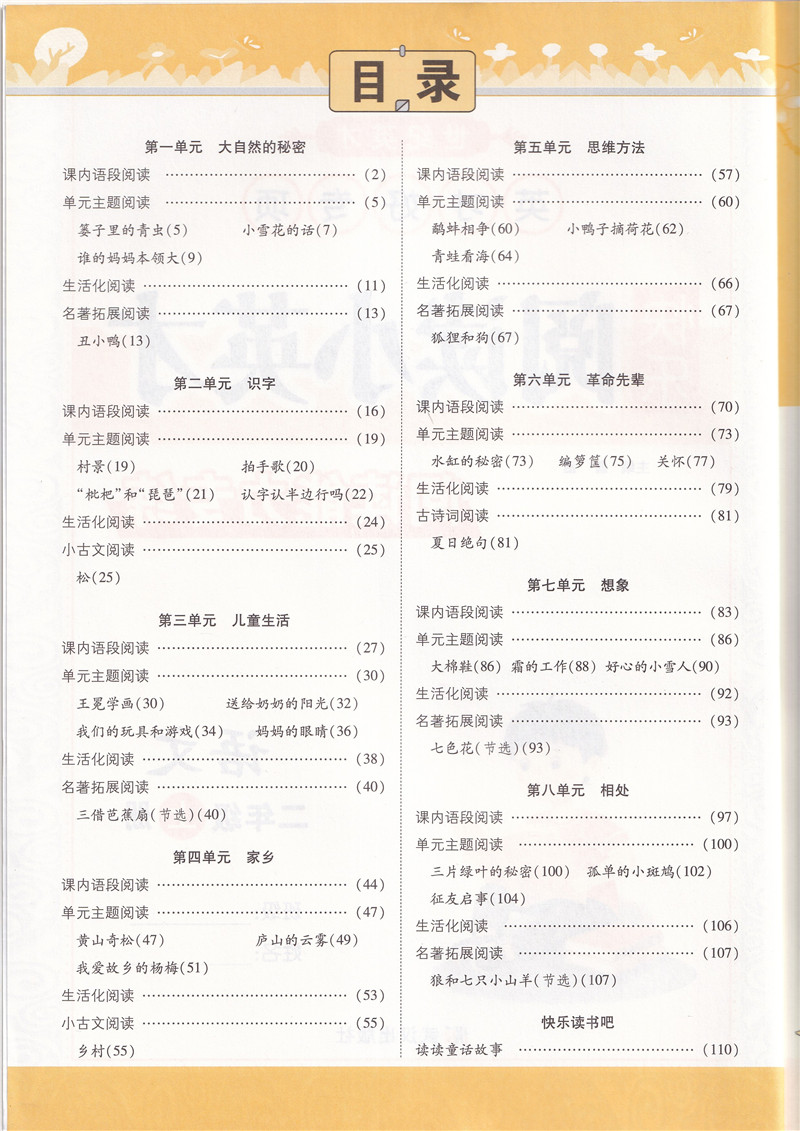 目录
第一单元 大自然的秘密
课内语段阅读 ……………………………… (2)
单元主题阅读 ……………………………… (5)
篓子里的青虫(5) 小雪花的话(7)
谁的妈妈本领大(9)
生活化阅读 ……………………………… (11)
名著拓展阅读 ……………………………… (13)
丑小鸭(13)
第二单元 识字
课内语段阅读 ……………………………… (16)
单元主题阅读 ……………………………… (19)
村景(19) 拍手歌(20)
“枇杷”和“琵琶”(21) 认字认半边行吗(22)
生活化阅读 ……………………………… (24)
小古文阅读 ……………………………… (25)
松(25)
第三单元 儿童生活
课内语段阅读 ……………………………… (27)
单元主题阅读 ……………………………… (30)
王冕学画(30) 送给奶奶的阳光(32)
我们的玩具和游戏(34) 妈妈的眼睛(36)
生活化阅读 ……………………………… (38)
名著拓展阅读 ……………………………… (40)
三借芭蕉扇(节选)(40)
第四单元 家乡
课内语段阅读 ……………………………… (44)
单元主题阅读 ……………………………… (47)
黄山奇松(47) 庐山的云雾(49)
我爱故乡的杨梅(51)
生活化阅读 ……………………………… (53)
小古文阅读 ……………………………… (55)
乡村(55)
第五单元 思维方法
课内语段阅读 ……………………………… (57)
单元主题阅读 ……………………………… (60)
鹬蚌相争(60) 小鸭子摘荷花(62)
青蛙看海(64)
生活化阅读 ……………………………… (66)
名著拓展阅读 ……………………………… (67)
狐狸和狗(67)
第六单元 革命先辈
课内语段阅读 ……………………………… (70)
单元主题阅读 ……………………………… (73)
水缸的秘密(73) 编箩筐(75) 关怀(77)
生活化阅读 ……………………………… (79)
古诗词阅读 ……………………………… (81)
夏日绝句(81)
第七单元 想象
课内语段阅读 ……………………………… (83)
单元主题阅读 ……………………………… (86)
大棉鞋(86) 霜的工作(88) 好心的小雪人(90)
生活化阅读 ……………………………… (92)
名著拓展阅读 ……………………………… (93)
七色花(节选)(93)
第八单元 相处
课内语段阅读 ……………………………… (97)
单元主题阅读 ……………………………… (100)
三片绿叶的秘密(100) 孤单的小斑鸠(102)
征友启事(104)
生活化阅读 ……………………………… (106)
名著拓展阅读 ……………………………… (107)
狼和七只小山羊(节选)(107)
快乐读书吧
读读童话故事 ……………………………… (110)